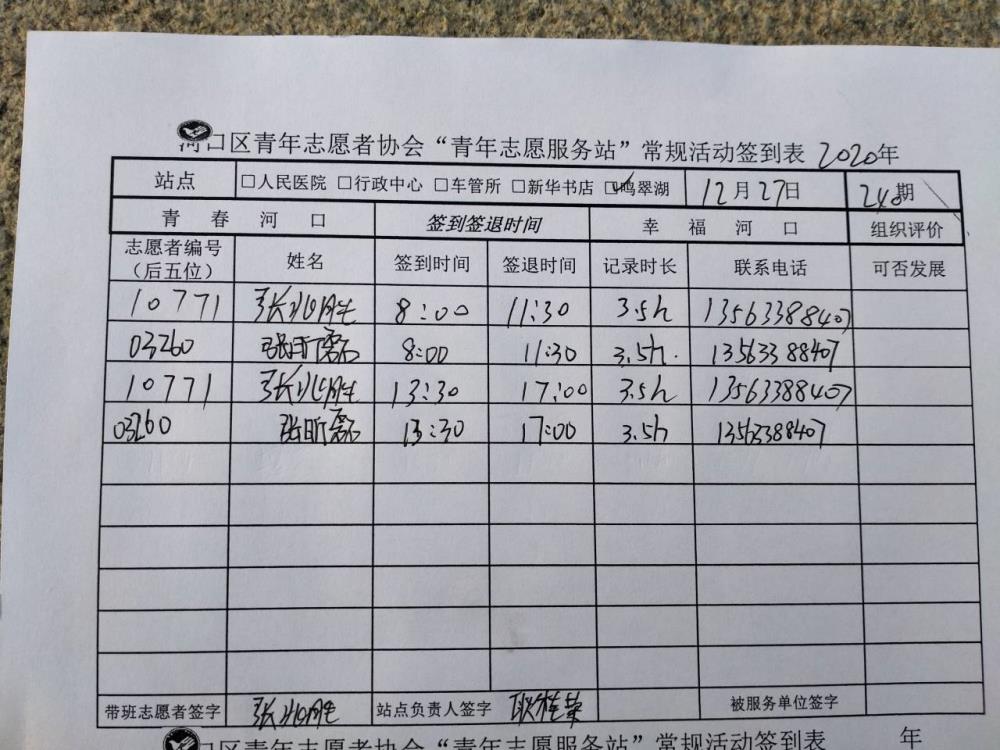 河口区青年志愿者协会“青年志愿服务站”常规活动签到表 2020年
站点 □人民医院 □行政中心 □车管所 □新华书店 ☑鸣翠湖 12月27日 248期
青春河口 签到签退时间 幸福河口 组织评价
志愿者编号（后五位） 姓名 签到时间 签退时间 记录时长 联系电话 可否发展
10771 张兆胜 8:00 11:30 3.5h 13563388407
03260 张昕磊 8:00 11:30 3.5h. 13563388407
10771 张兆胜 13:30 17:00 3.5h 13563388407
03260 张昕磊 13:30 17:00 3.5h 13563388407
带班志愿者签字 张兆胜 站点负责人签字 耿桂荣 被服务单位签字
口区青年志愿者协会“青年志愿服务站”常规活动签到表 年